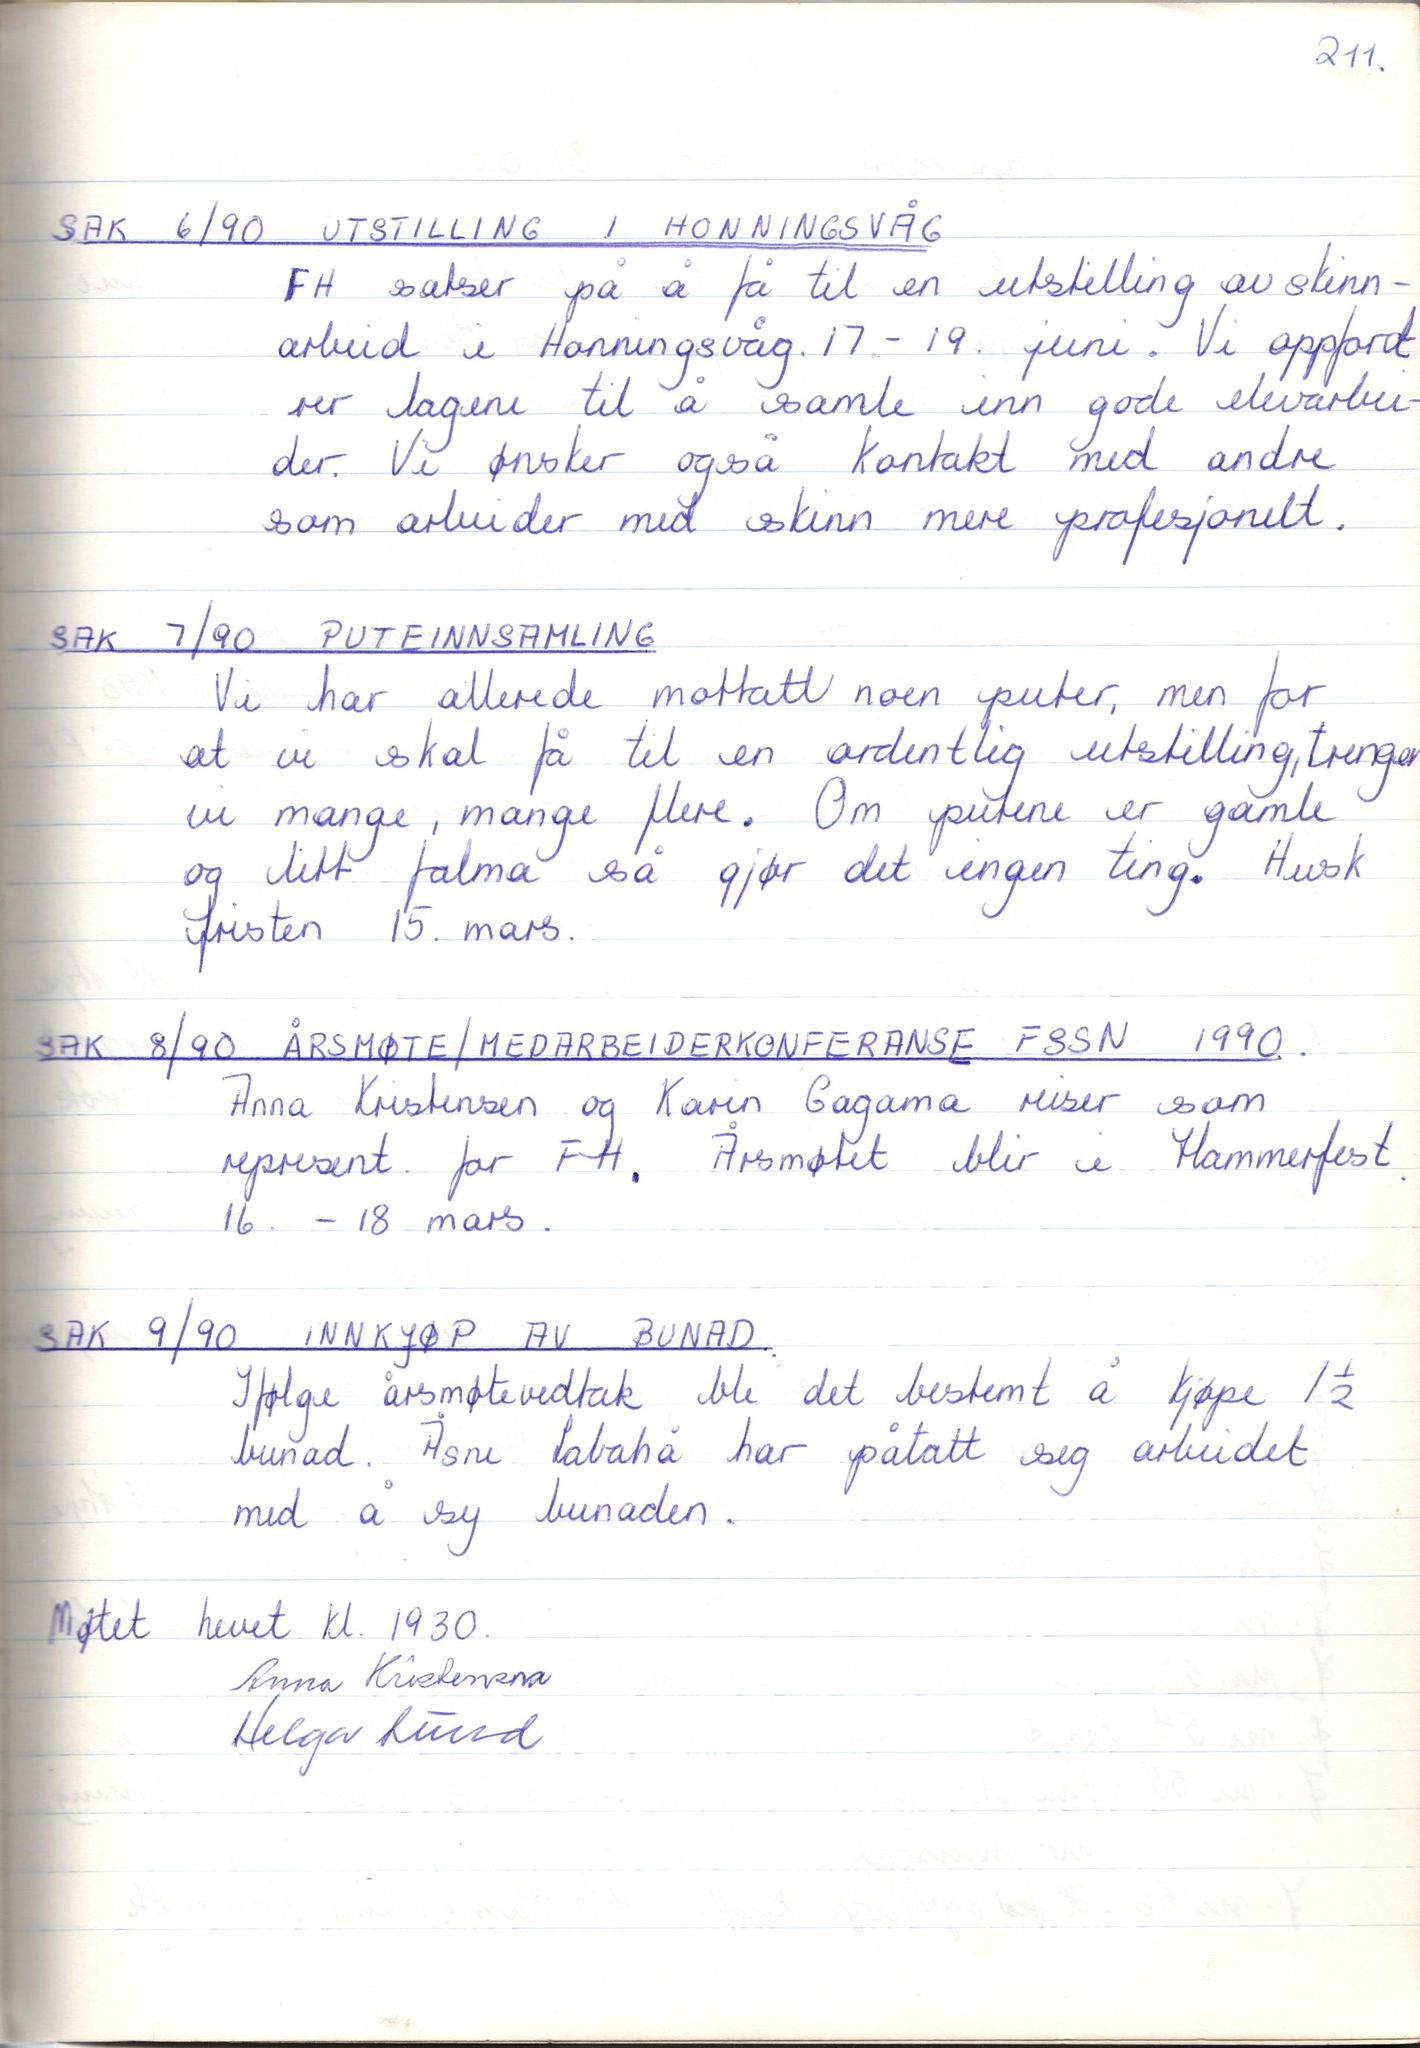 211.
SAK 6/90 UTSTILLING I HONNINGSVÅG
FH satser på å få til en utstilling av skinn-
arbeid i Honningsvåg. 17 - 19. juni. Vi oppford
rer lagene til å samle inn gode elevarbei-
der. Vi ønsker også kontakt med andre
som arbeider med skinn mere profesjonelt.
SAK 7/90 PUTEINNSAMLING
Vi har allerede mottatt noen puter, men for
at vi skal få til en ordentlig utstilling, trenger
vi mange, mange flere. Om putene er gamle
og litt falma så gjør det ingen ting. Husk
fristen 15. mars.
SAK 8/90 ÅRSMØTE/MEDARBEIDERKONFERANSE FSSN 1990.
Anna Kristensen og Karin Gagama reiser som
represent. for FH. Årsmøtet blir i Hammerfest.
16. - 18 mars.
SAK 9/90 INNKJØP AV BUNAD.
Ifølge årsmøtevedtak ble det bestemt å kjøpe 1 1/2
bunad. Åsne Labahå har påtatt seg arbeidet
med å sy bunaden.
Møtet hevet kl. 1930.
Anna Kristensen
Helga Lund